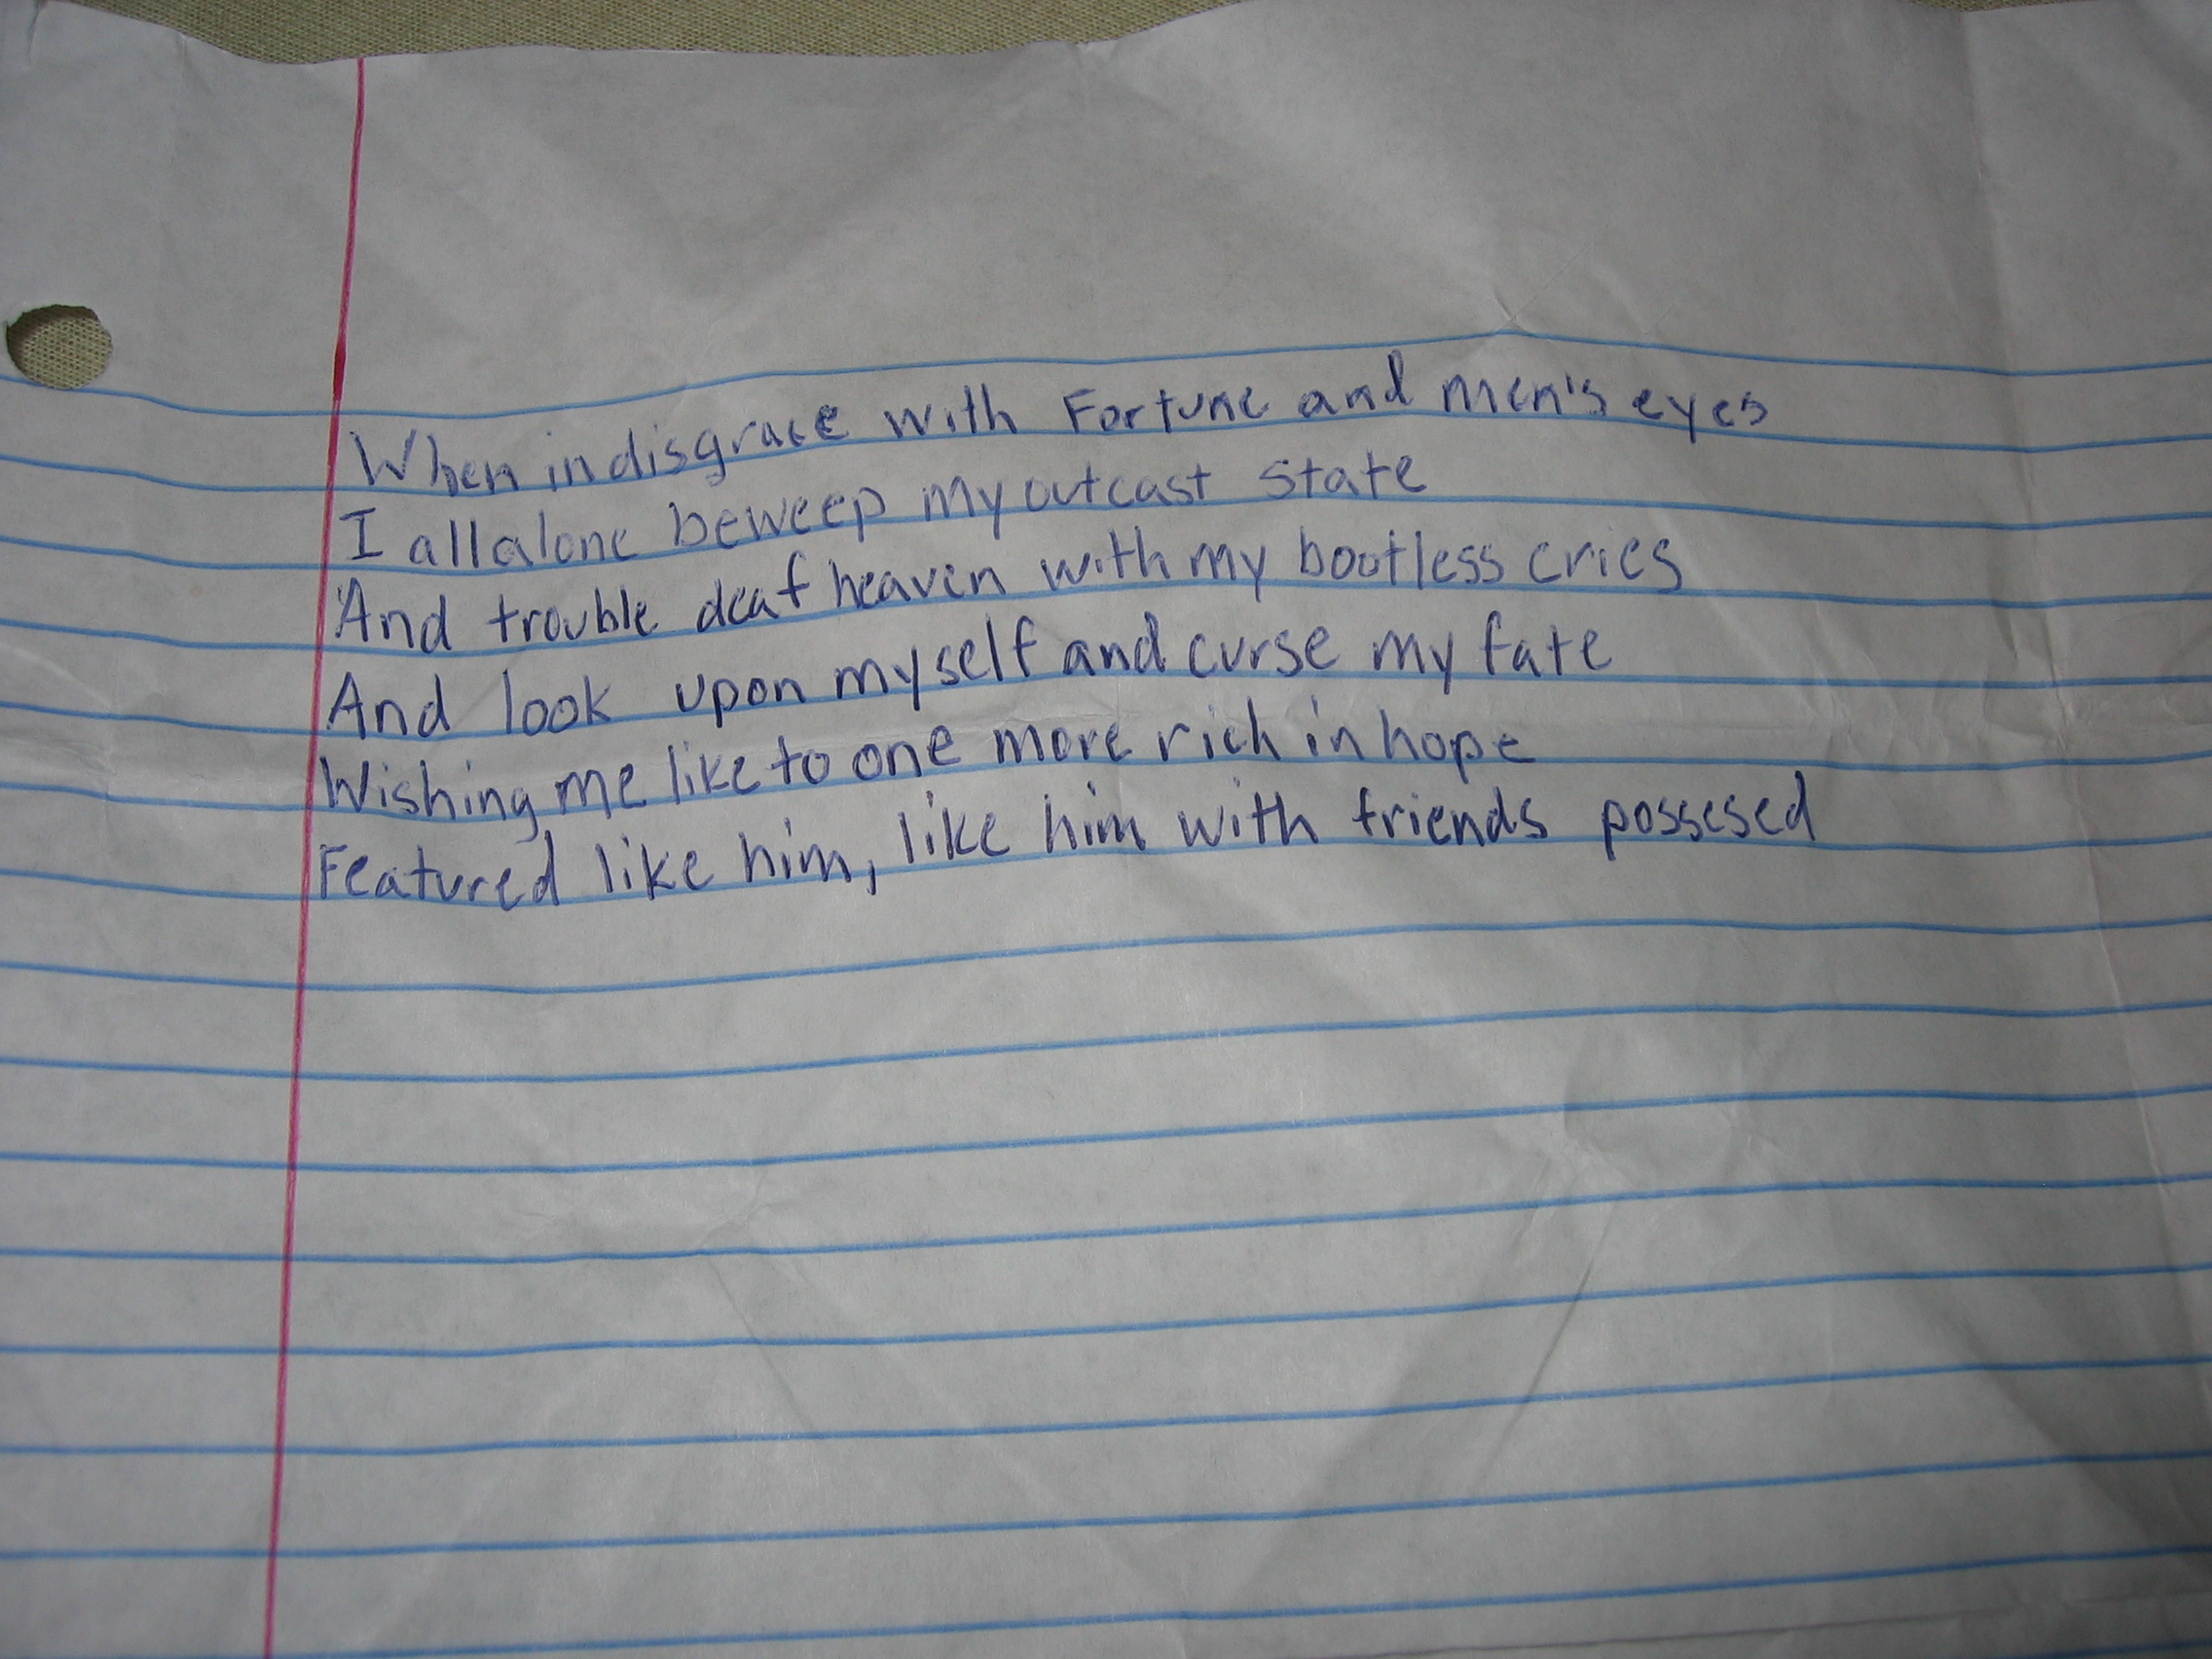 When in disgrace with Fortune and men's eyes
I all alone beweep my outcast state
And trouble deaf heaven with my bootless cries
And look upon myself and curse my fate
Wishing me like to one more rich in hope
Featured like him, like him with friends possesed